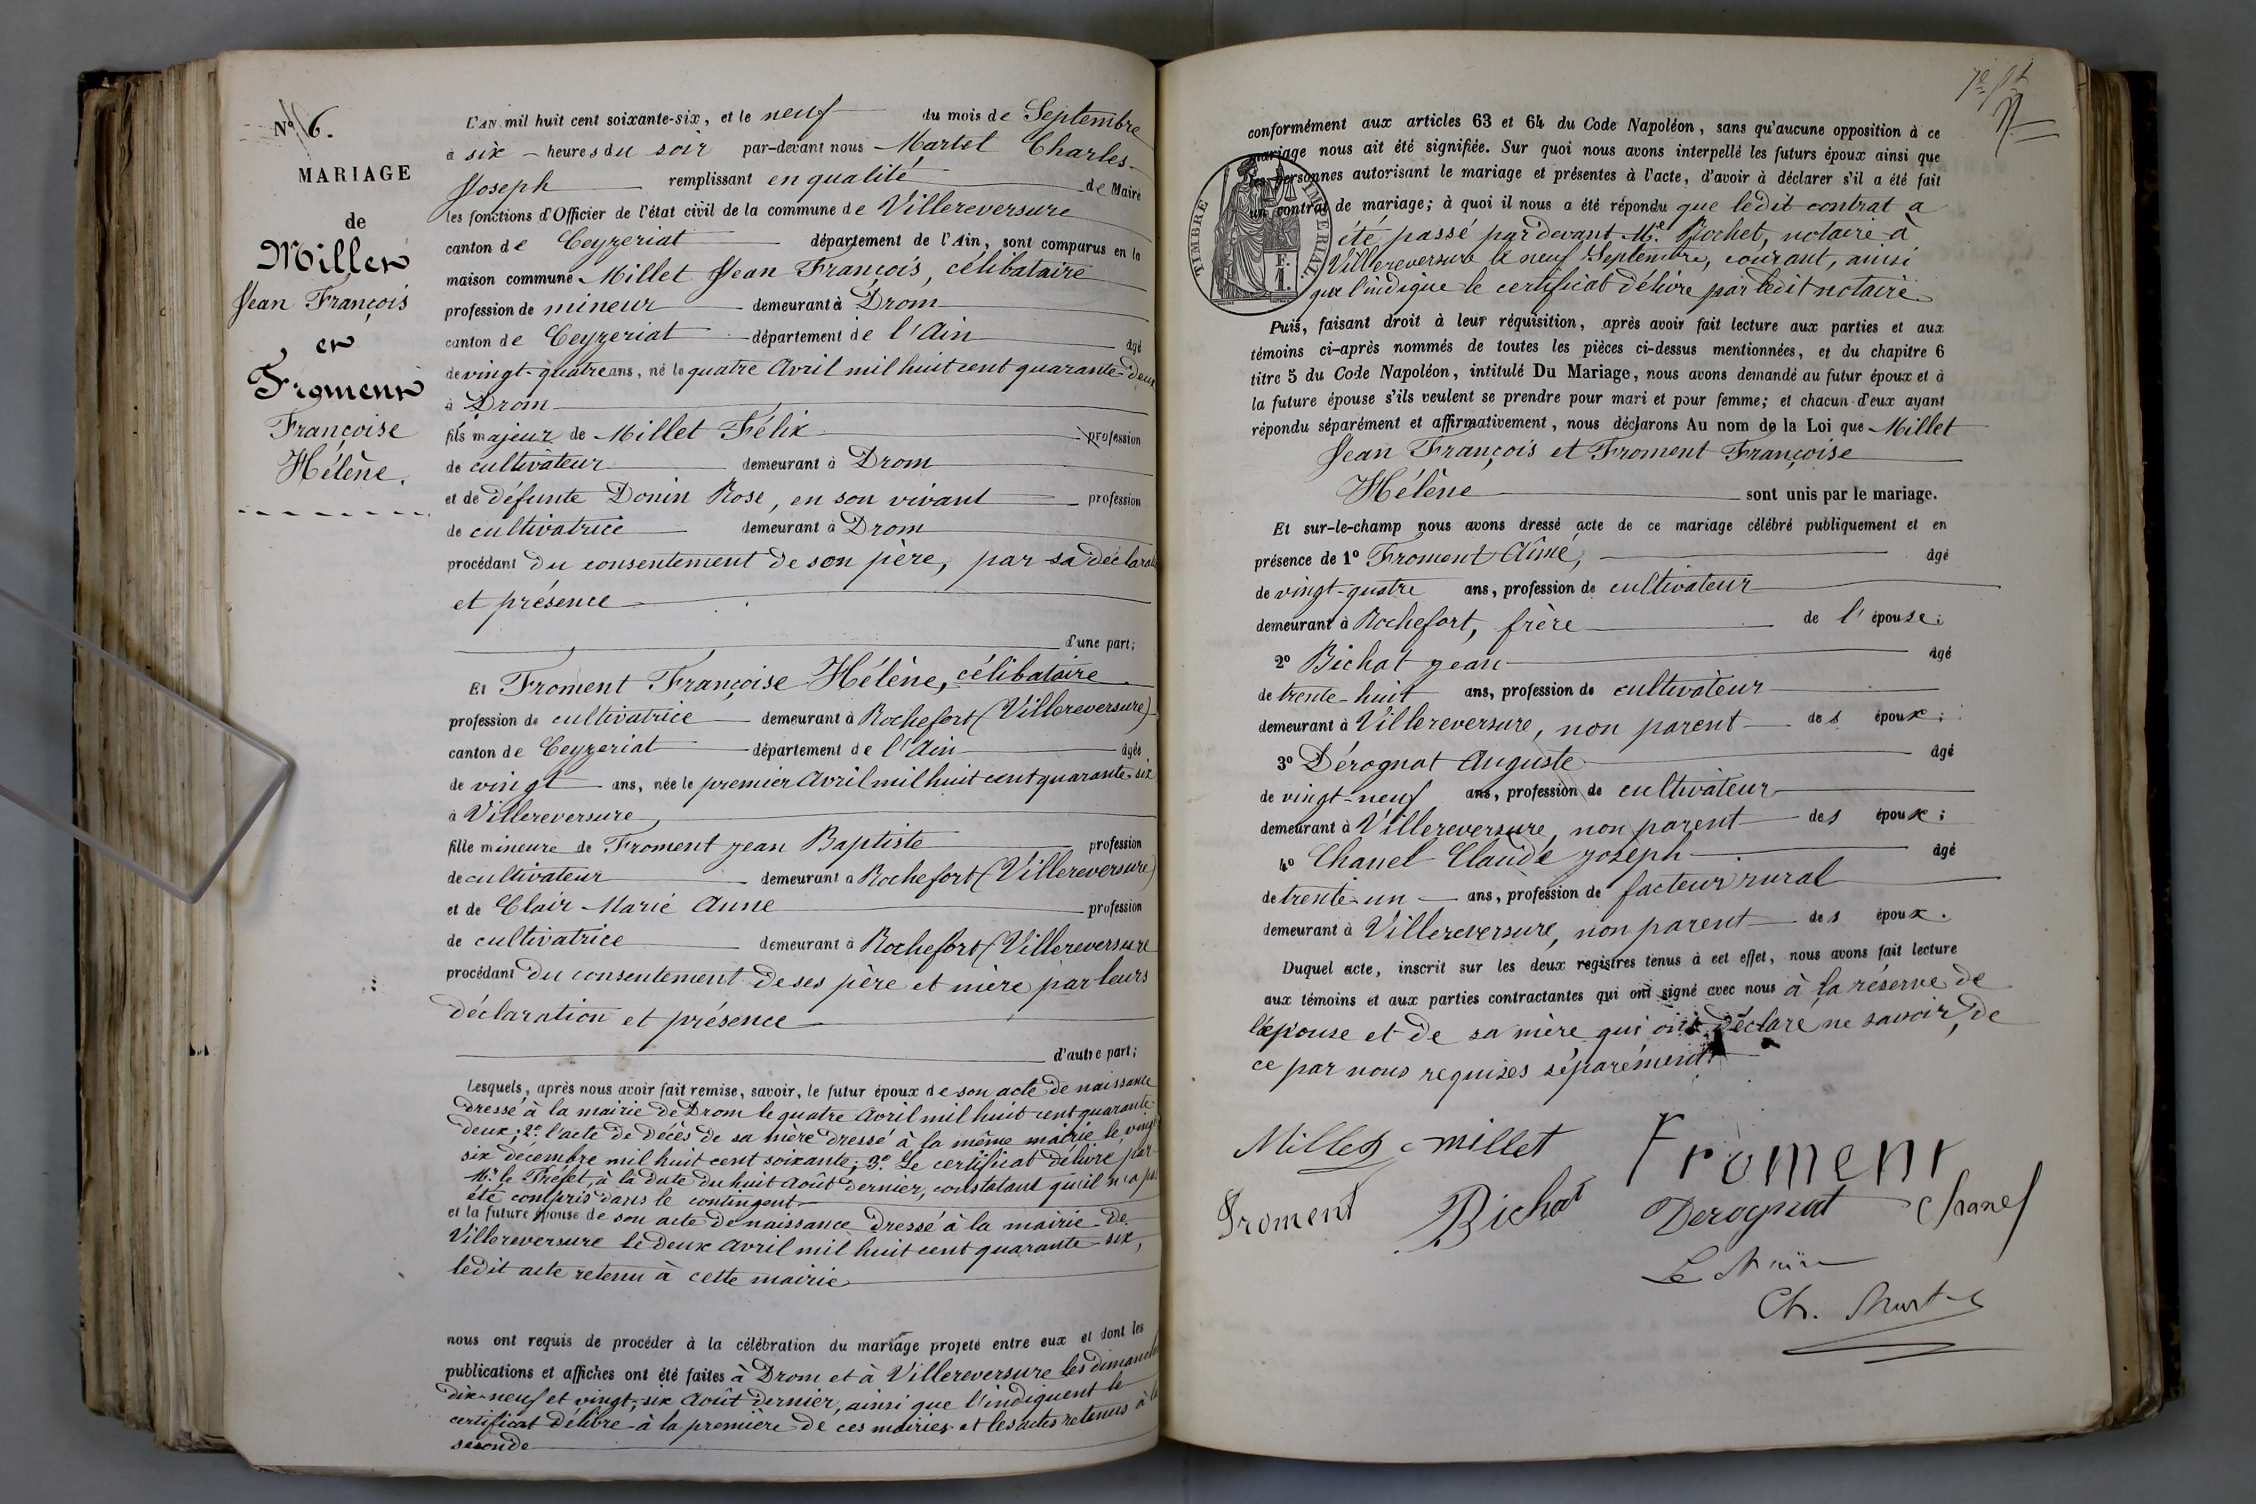 N° 6.
MARIAGE
de
Millet
Jean François
et
Froment
Françoise
Hélène.
L'AN mil huit cent soixante-six, et le neuf du mois de Septembre
à six heures du soir par-devant nous Martel Charles-
Joseph remplissant en qualité de Maire
les fonctions d'Officier de l'état civil de la commune de Villereversure
canton de Ceyzeriat département de l'Ain, sont comparus en la
maison commune Millet Jean François, célibataire
profession de mineur demeurant à Drom
canton de Ceyzeriat département de l'Ain âgé
de vingt-quatre ans, né le quatre Avril mil huit cent quarante-deux
à Drom
fils majeur de Millet Félix profession
de cultivateur demeurant à Drom
et de défunte Donin Rose, en son vivant profession
de cultivatrice demeurant à Drom
procédant du consentement de son père, par sa déclarat
et présence
d'une part;
Et Froment Françoise Hélène, célibataire
profession de cultivatrice demeurant à Rochefort (Villereversure)
canton de Ceyzeriat département de l'Ain âgée
de vingt ans, née le premier Avril mil huit cent quarante-six
à Villereversure
fille mineure de Froment jean Baptiste profession
de cultivateur demeurant à Rochefort (Villereversure)
et de Clair Marie Anne profession
de cultivatrice demeurant à Rochefort (Villereversure
procédant du consentement de ses père et mère par leurs
déclaration et présence
d'autre part;
Lesquels, après nous avoir fait remise, savoir, le futur époux de son acte de naissance
dressé à la mairie de Drom le quatre Avril mil huit cent quarante
deux; 2° l'acte de décès de sa mère dressé à la même mairie le vingt
six décembre mil huit cent soixante; 3° Le certificat délivré par
Mr le Préfet, à la date du huit Août dernier, constatant qu'il n'a pas
été compris dans le contingent
et la future épouse de son acte de naissance dressé à la mairie de
Villereversure le deux Avril mil huit cent quarante-six,
ledit acte retenu à cette mairie
nous ont requis de procéder à la célébration du mariage projeté entre eux et dont les
publications et affiches ont été faites à Drom et à Villereversure les dimanches
dix-neuf et vingt-six Août dernier, ainsi que l'indiquent le
certificat délivré à la première de ces mairies et les actes retenus à la
seconde
conformément aux articles 63 et 64 du Code Napoléon, sans qu'aucune opposition à ce
mariage nous ait été signifiée. Sur quoi nous avons interpellé les futurs époux ainsi que
les personnes autorisant le mariage et présentes à l'acte, d'avoir à déclarer s'il a été fait
un contrat de mariage; à quoi il nous a été répondu que ledit contrat a
été passé par devant Me Rochet, notaire à
Villereversure le neuf Septembre, courant, ainsi
que l'indique le certificat délivré par ledit notaire
TIMBRE IMPERIAL.
F.
1.
Puis, faisant droit à leur réquisition, après avoir fait lecture aux parties et aux
témoins ci-après nommés de toutes les pièces ci-dessus mentionnées, et du chapitre 6
titre 5 du Code Napoléon, intitulé Du Mariage, nous avons demandé au futur époux et à
la future épouse s'ils veulent se prendre pour mari et pour femme; et chacun d'eux ayant
répondu séparément et affirmativement, nous déclarons Au nom de la Loi que Millet
Jean François et Froment Françoise
Hélène sont unis par le mariage.
Et sur-le-champ nous avons dressé acte de ce mariage célébré publiquement et en
présence de 1° Froment Aimé, âgé
de vingt-quatre ans, profession de cultivateur
demeurant à Rochefort, frère de l'épouse;
2° Bichat jean âgé
de trente-huit ans, profession de cultivateur
demeurant à Villereversure, non parent des époux;
3° Dérognat Auguste âgé
de vingt-neuf ans, profession de cultivateur
demeurant à Villereversure, non parent des époux;
4° Chanel Claude joseph âgé
de trente-un ans, profession de facteur rural
demeurant à Villereversure, non parent des époux.
Duquel acte, inscrit sur les deux registres tenus à cet effet, nous avons fait lecture
aux témoins et aux parties contractantes qui ont signé avec nous à la réserve de
l'épouse et de sa mère qui ont déclaré ne savoir, de
ce par nous requises séparément.
Millet millet Froment
Froment Bichat Derognat Chanel
Le Maire
Ch. Martel